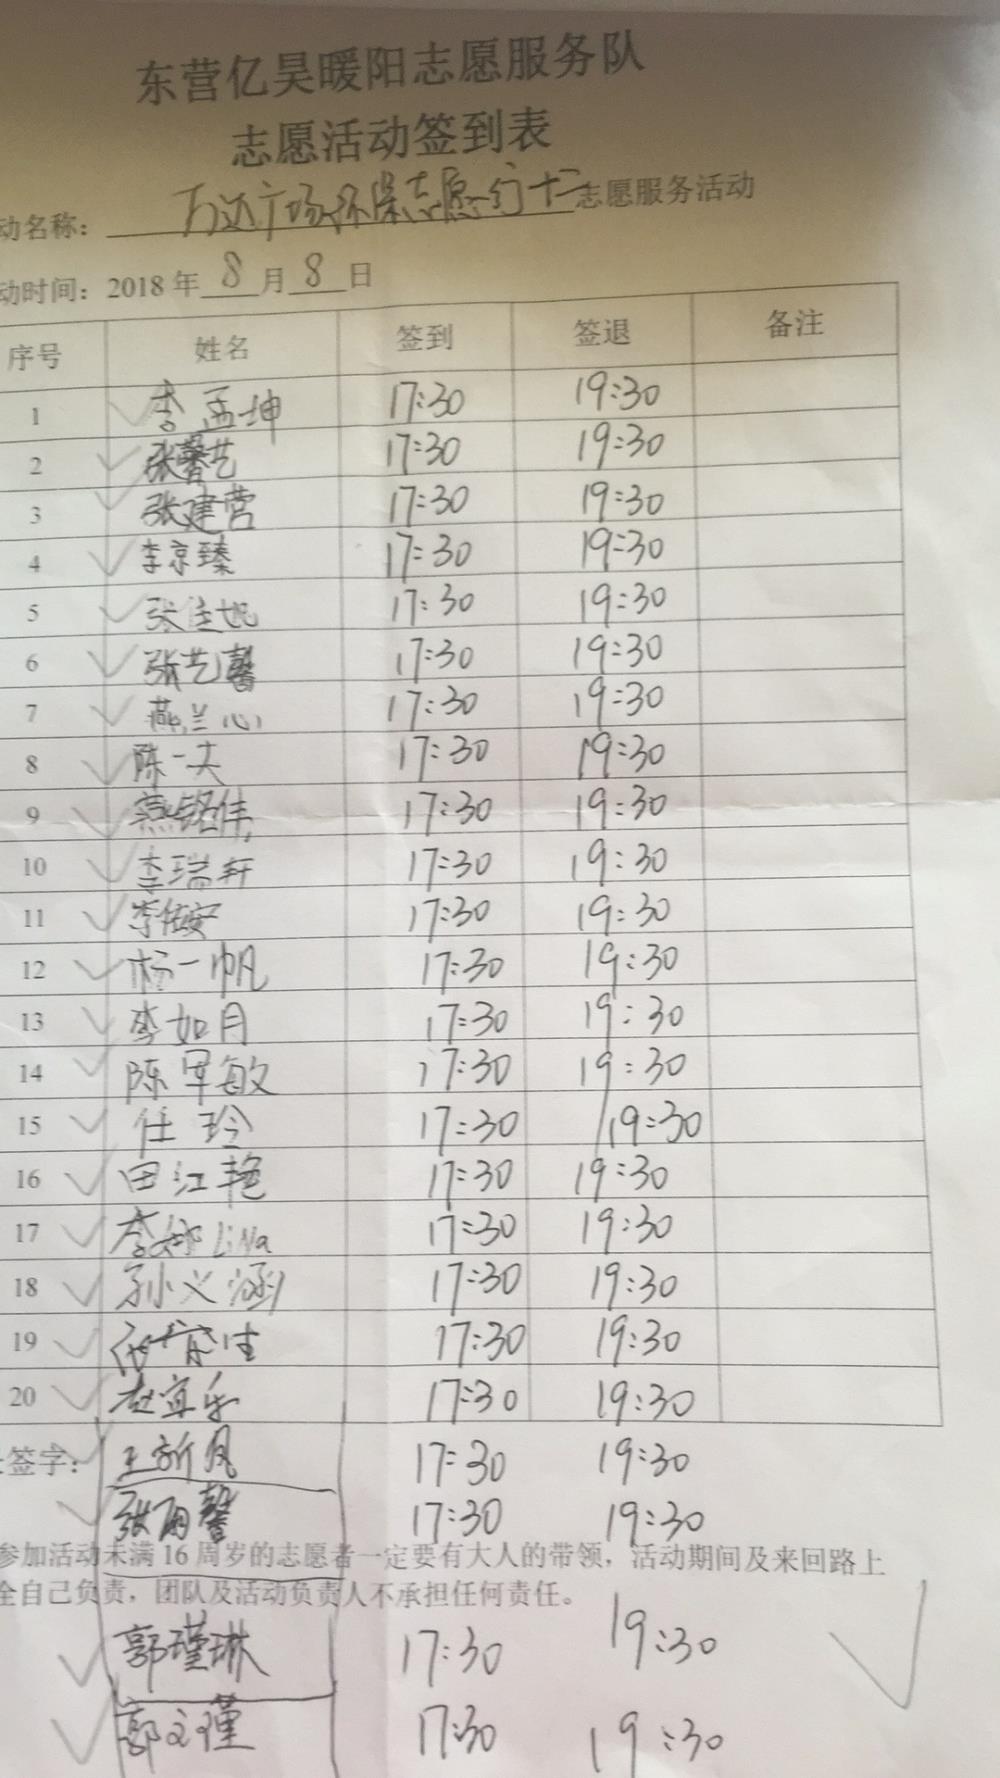 东营亿昊暖阳志愿服务队
志愿活动签到表
动名称： 万达广场环保志愿行十二志愿服务活动
动时间：2018年8月8日
序号 姓名 签到 签退 备注
1 李孟坤 17:30 19:30
2 张馨艺 17:30 19:30
3 张建营 17:30 19:30
4 李京臻 17:30 19:30
5 张佳旭 17:30 19:30
6 张艺馨 17:30 19:30
7 燕兰心 17:30 19:30
8 陈一夫 17:30 19:30
9 燕铭伟 17:30 19:30
10 李瑞轩 17:30 19:30
11 李依安 17:30 19:30
12 杨一帆 17:30 19:30
13 李如月 17:30 19:30
14 陈军敏 17:30 19:30
15 任玲 17:30 19:30
16 田江艳 17:30 19:30
17 李娜 LiNa 17:30 19:30
18 孙义涵 17:30 19:30
19 17:30 19:30
20 赵宜乐 17:30 19:30
签字： 王新凤 17:30 19:30
张雨馨 17:30 19:30
参加活动未满16周岁的志愿者一定要有大人的带领，活动期间及来回路上
全自己负责，团队及活动负责人不承担任何责任。
郭瑾琳 17:30 19:30
郭文瑾 17:30 19:30